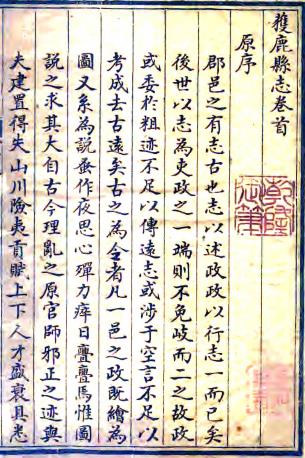 獲鹿縣志卷首
原序
郡邑之有志古也志以述政政以行志一而已矣
後世以志為吏政之一端則不免岐而二之故政
或委於粗迹不足以傳遠志或涉于空言不足以
考成去古遠矣古之為令者凡一邑之政既繪為
圖又系為說蚤作夜思心殫力瘁日亹亹焉惟圖
說之求其大自古今理亂之原官師邪正之迹與
夫建置得失山川險夷貢賦上下人才盛衰具悉